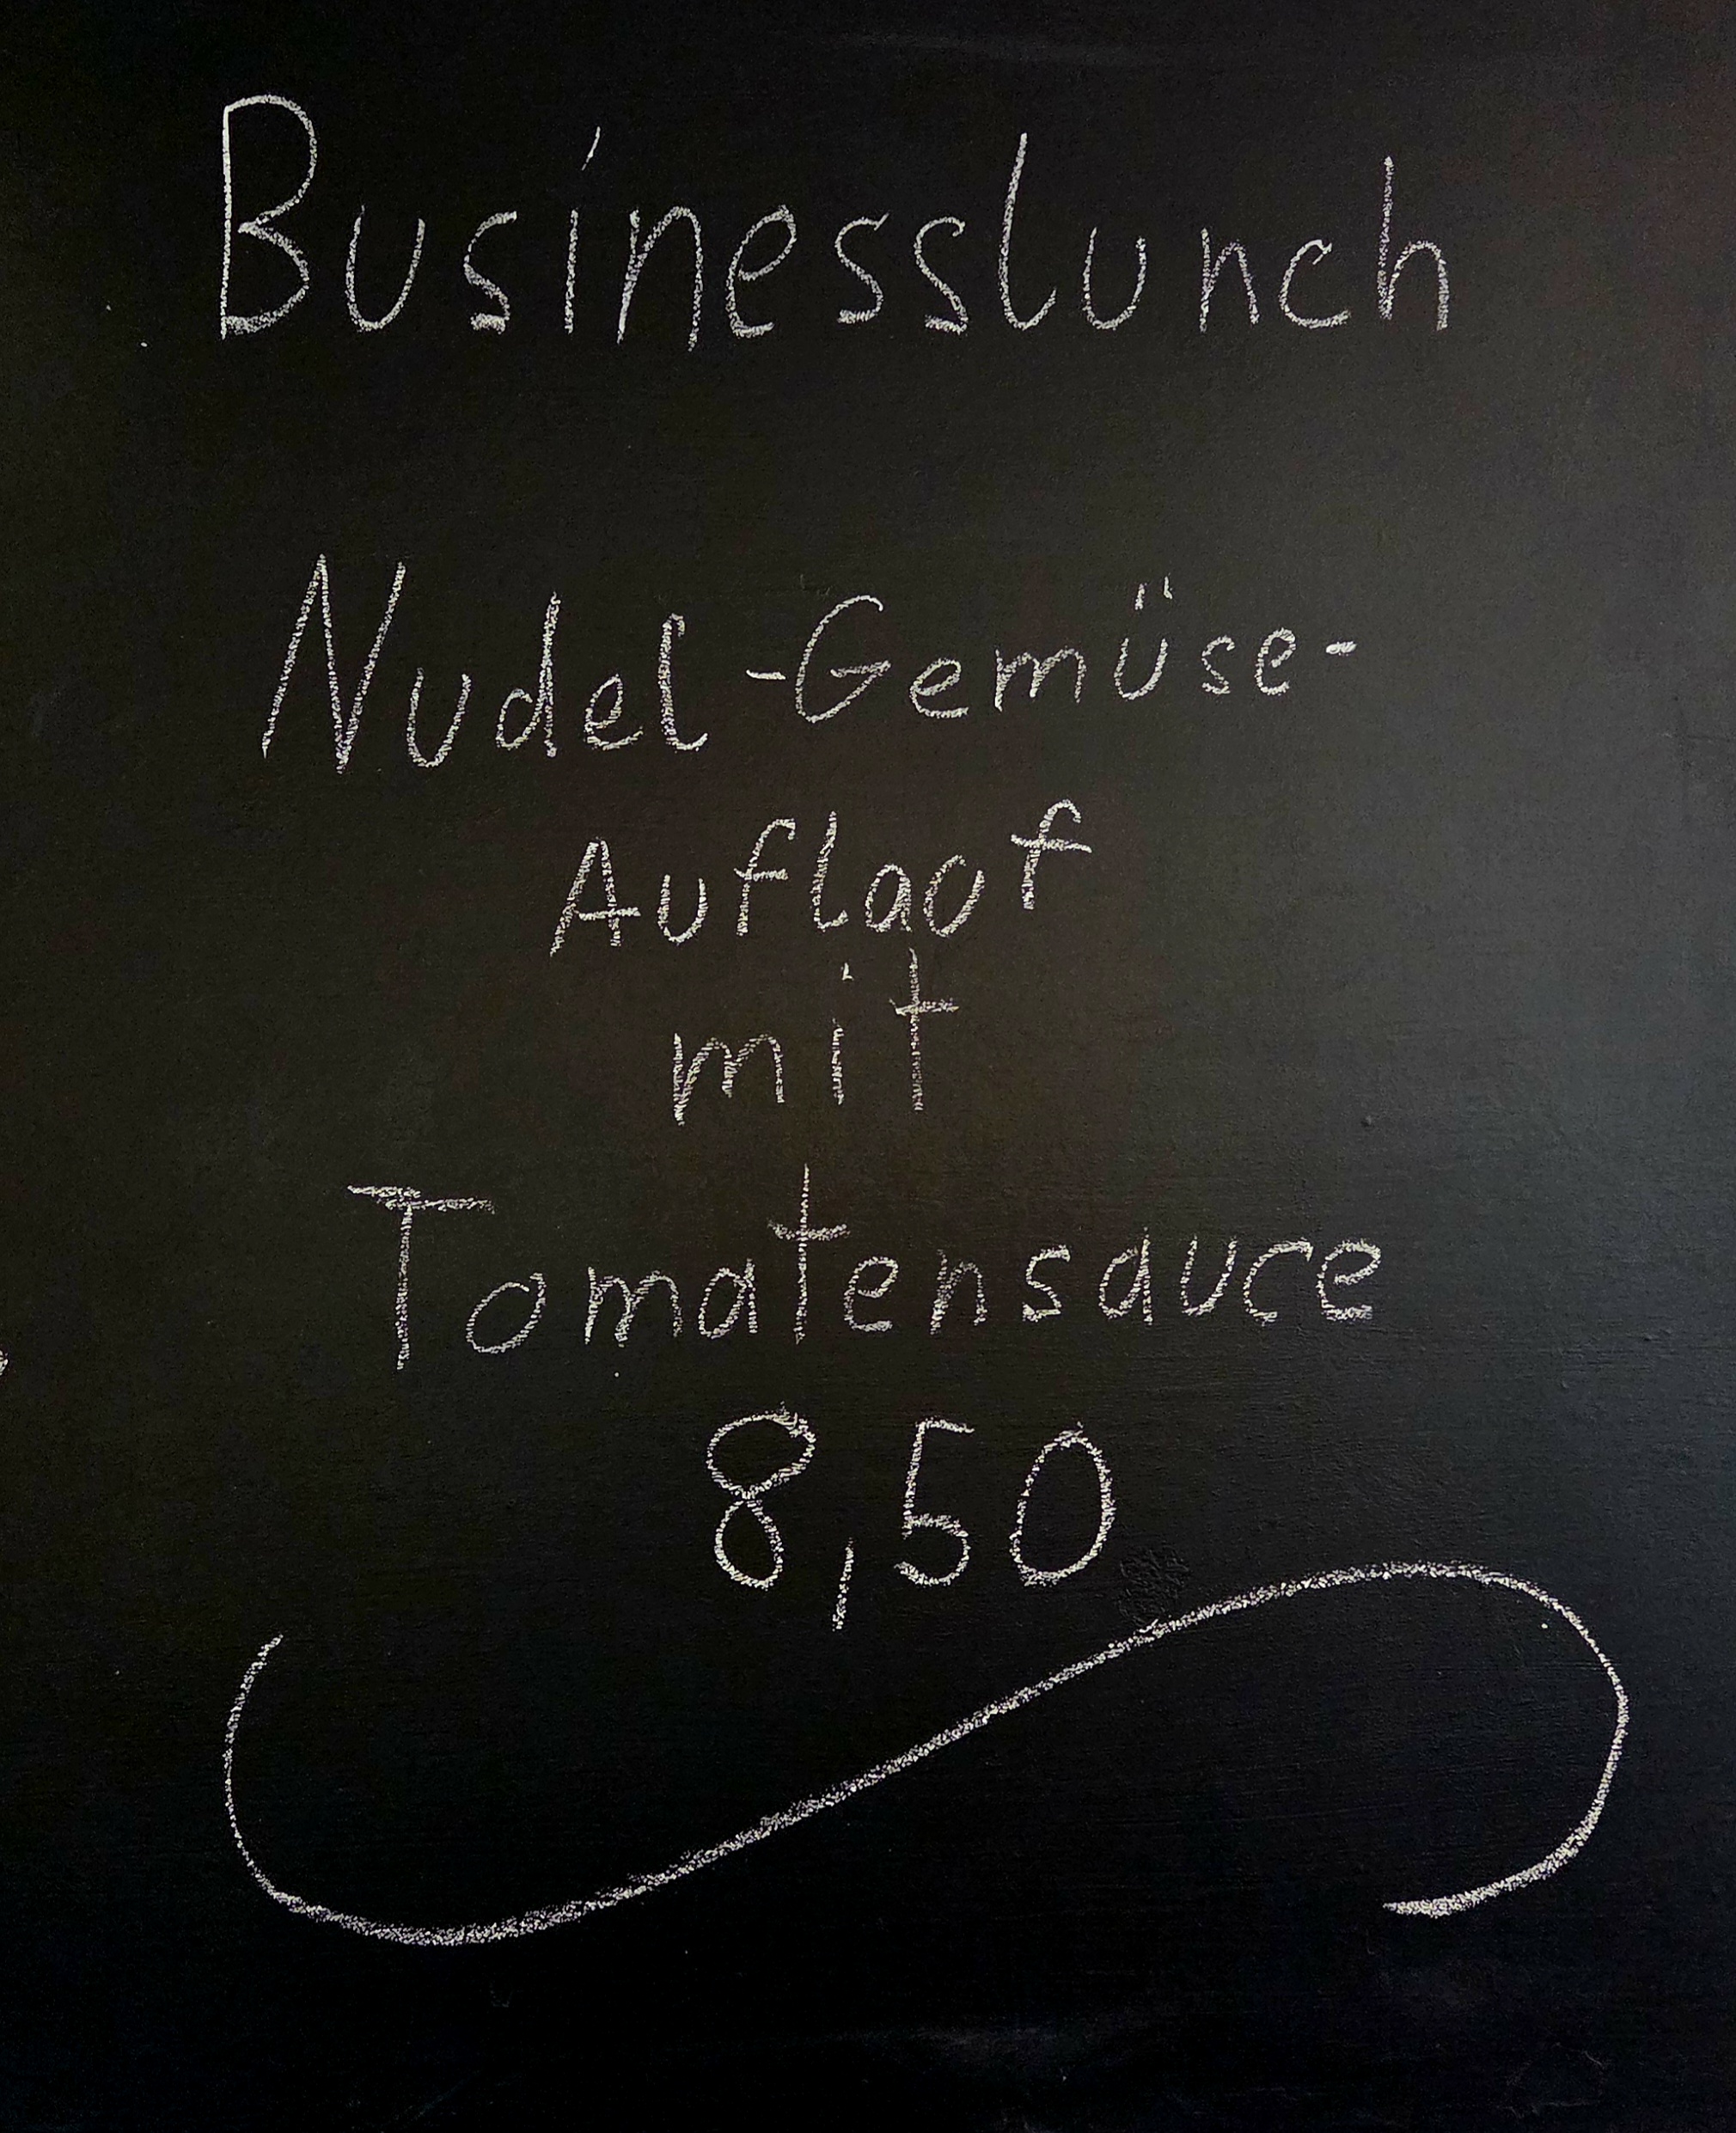 Businesslunch
Nudel-Gemüse-
Auflauf
mit
Tomatensauce
8,50